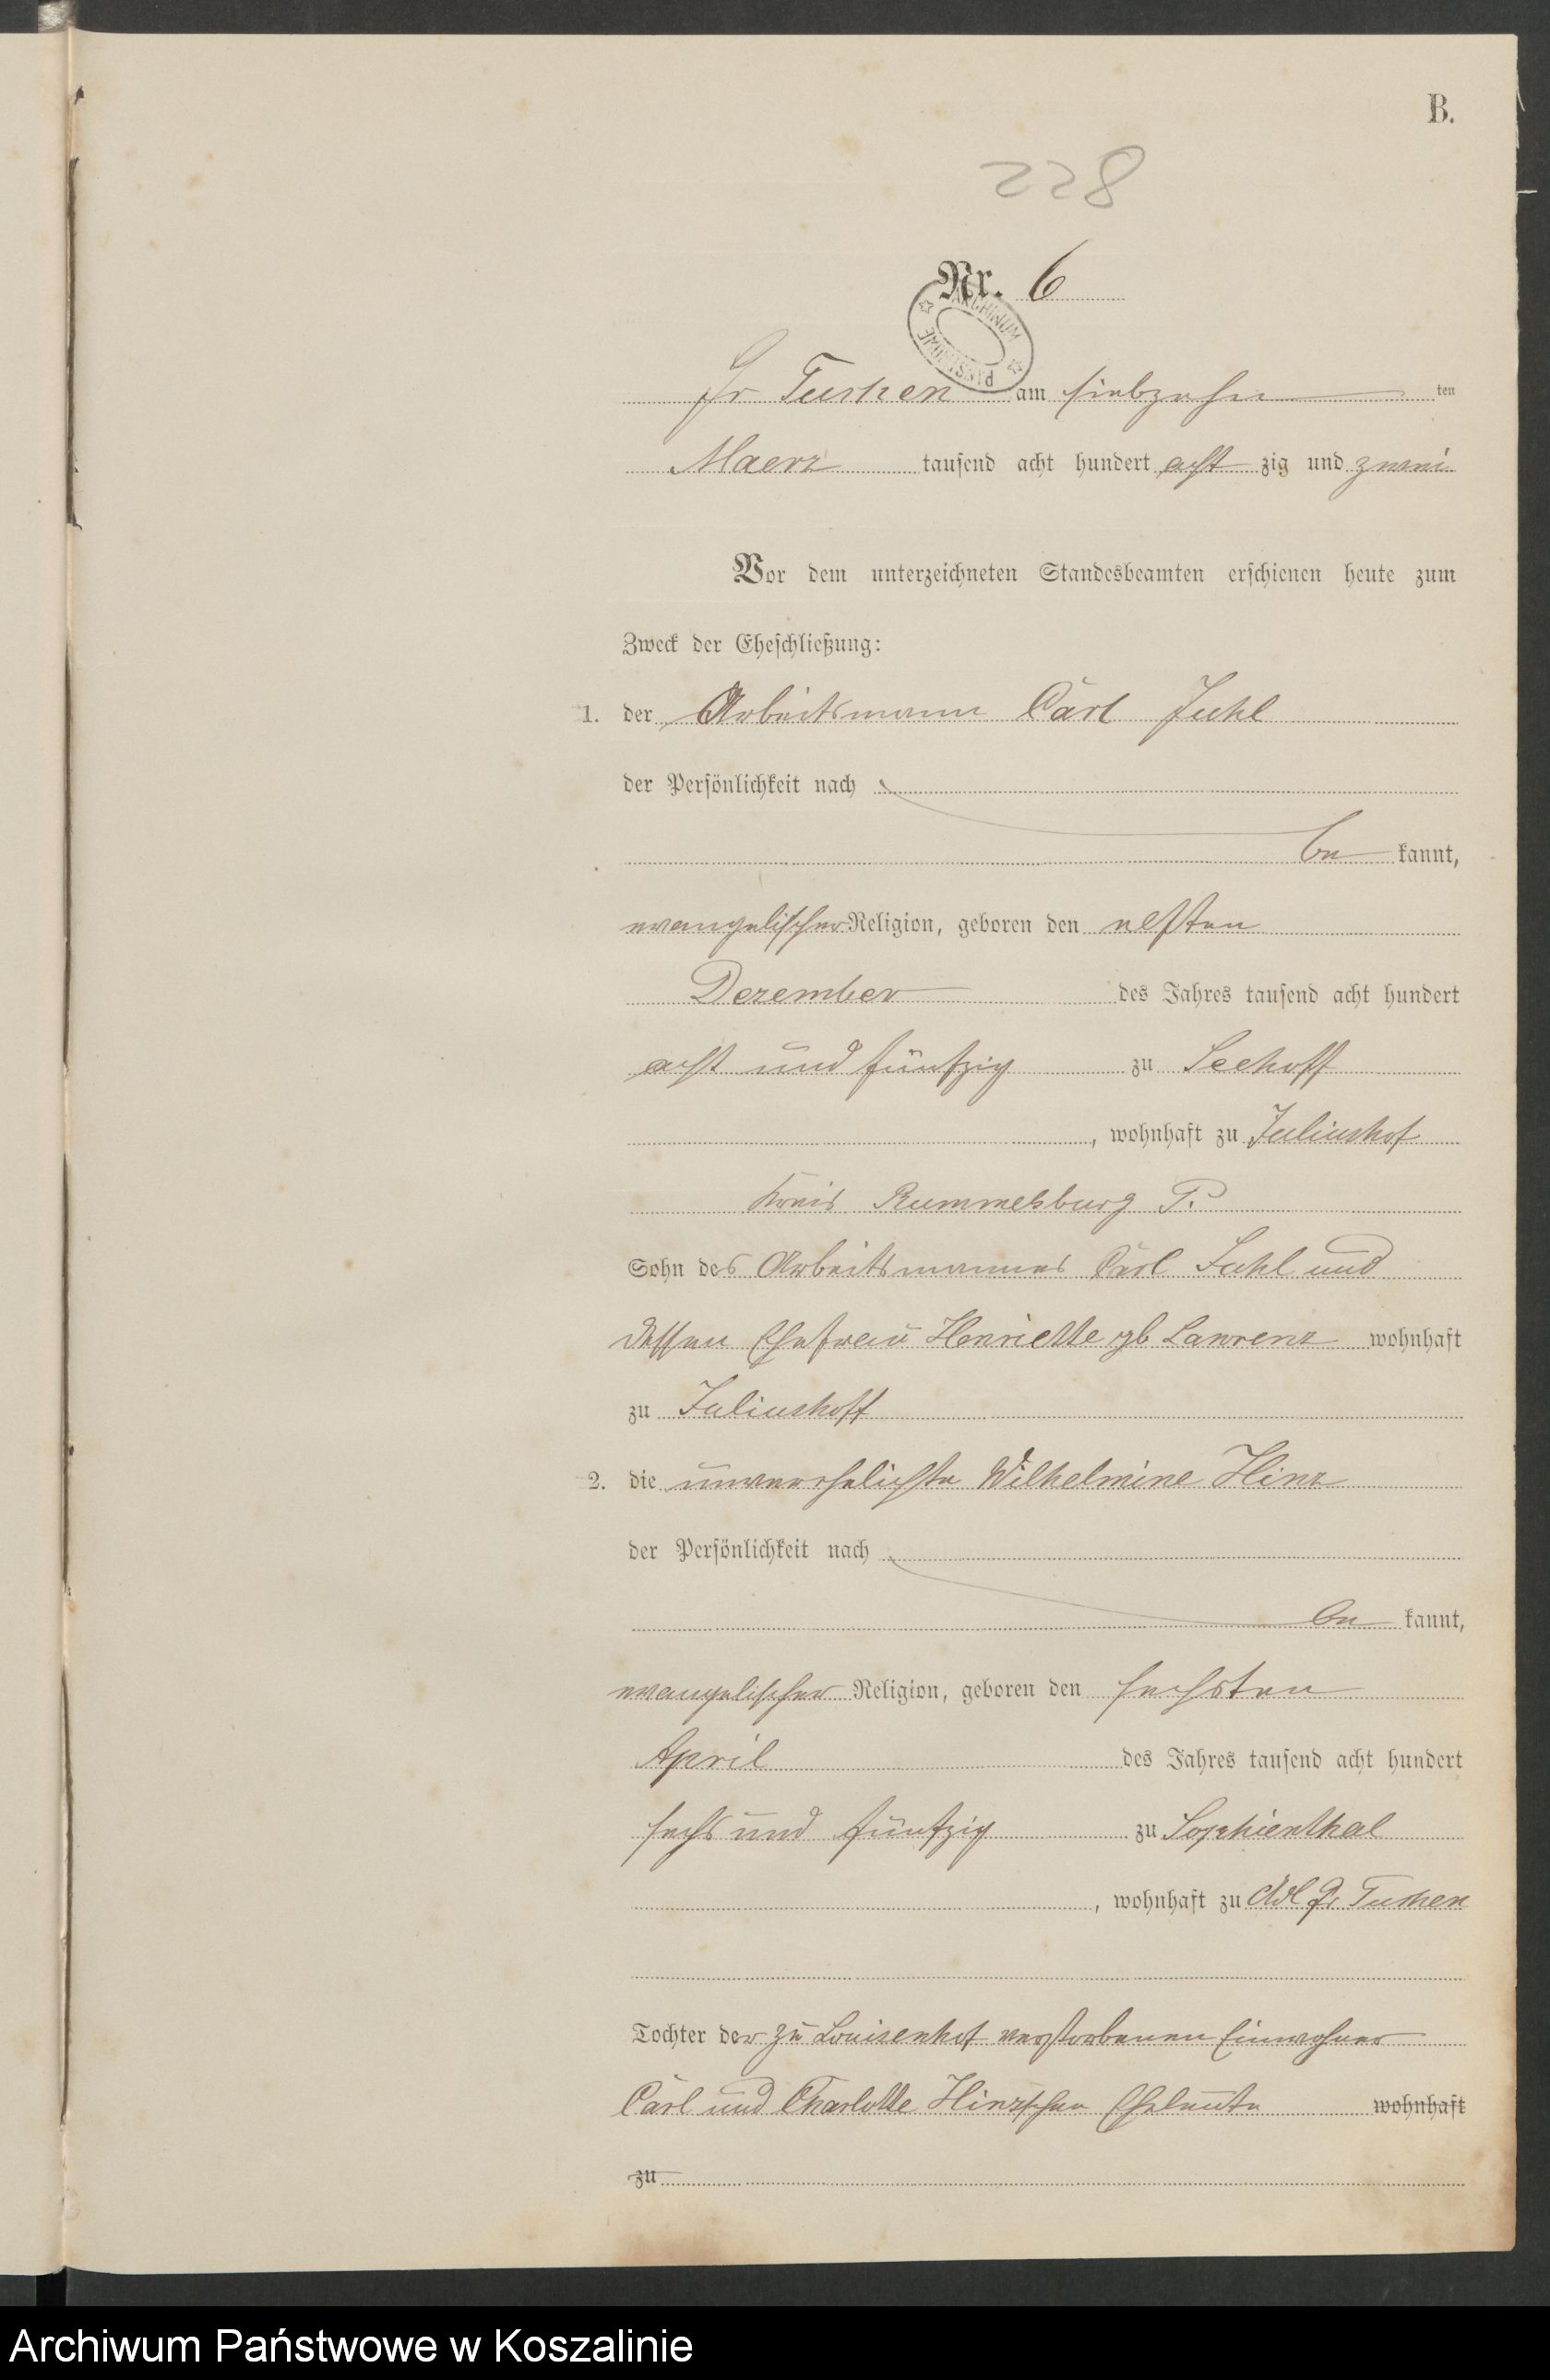 B.
228
Nr. 6
ARCHIWUM PAŃSTWOWE
Gr Tuchen am siebzehn ten
Maerz tausend acht hundert acht zig und zwei
Vor dem unterzeichneten Standesbeamten erschienen heute zum
Zweck der Eheschließung:
1. der Arbeitsmann Carl Juhl
der Persönlichkeit nach
be kannt,
evangelischer Religion, geboren den elften
Dezember des Jahres tausend acht hundert
acht und fünfzig zu Seehoff
, wohnhaft zu Juliushof
Kreis Rummelsburg P.
Sohn des Arbeitsmannes Carl Juhl und
dessen Ehefrau Henriette gb Lawrenz wohnhaft
zu Juliushoff
2. die unverehelichte Wilhelmine Hinz
der Persönlichkeit nach
be kannt,
evangelischer Religion, geboren den sechsten
April des Jahres tausend acht hundert
sechs und fünfzig zu Sophienthal
, wohnhaft zu Adl Gr Tuchen
Tochter der zu Louisenhof verstorbenen Einwohner
Carl und Charlotte Hinzschen Eheleute wohnhaft
zu
Archiwum Państwowe w Koszalinie